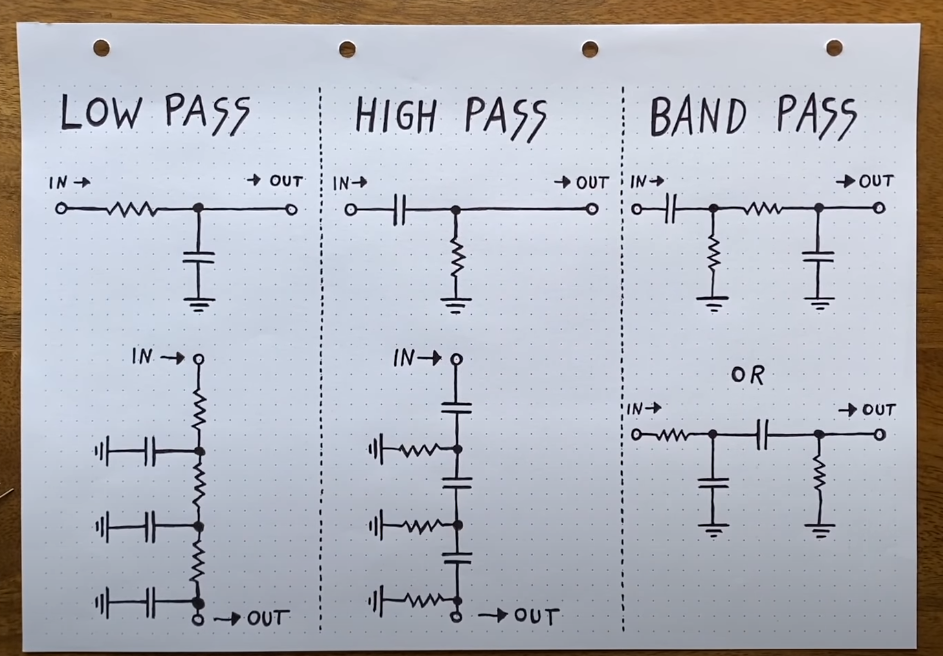 LOW PASS
IN → → OUT
IN →
→ OUT
HIGH PASS
IN → → OUT
IN →
→ OUT
BAND PASS
IN → → OUT
OR
IN → → OUT